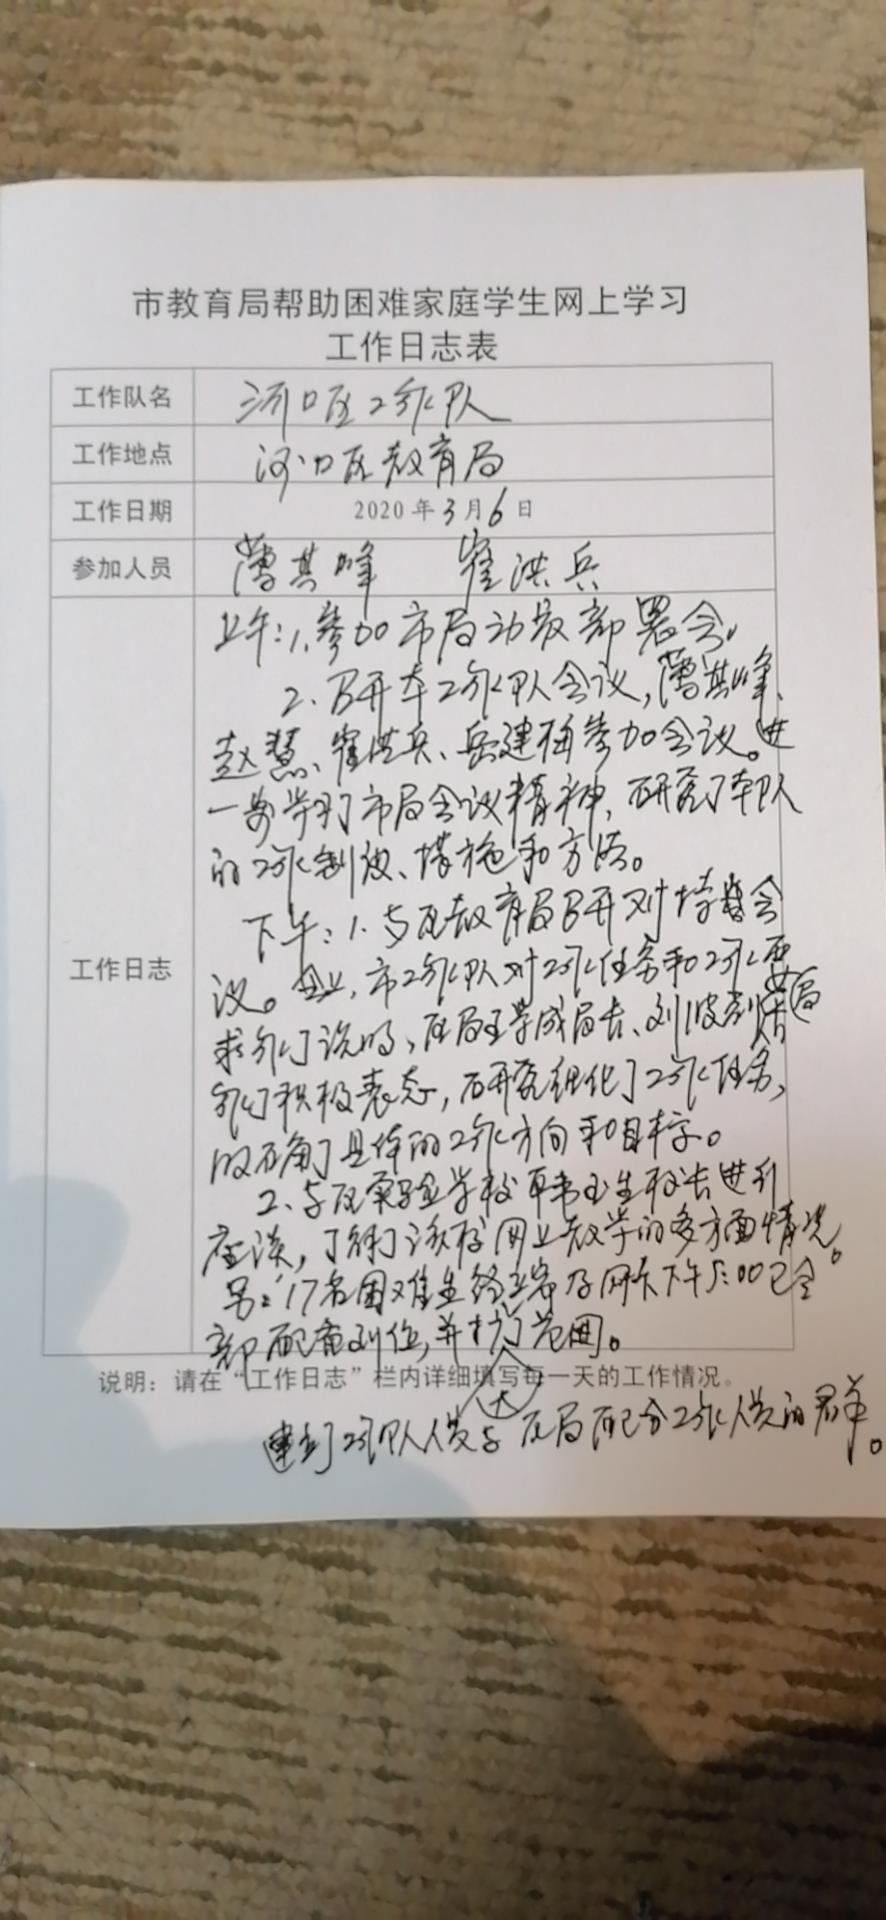 市教育局帮助困难家庭学生网上学习
工作日志表
工作队名 河口区工作队
工作地点 河口区教育局
工作日期 2020年3月6日
参加人员 薄其峰 崔洪兵
工作日志
上午:1.参加市局动员部署会。
2、召开本工作队会议,薄其峰、
赵慧、崔洪兵、岳建梅参加会议。进
一步学习了市局会议精神,研究了本队
的工作制度、措施和方法。
下午:1.与区教育局召开对接会
议。会上,市工作队对工作任务和工作要
求作了说明,区局王学成局长、刘波副局长
作了积极表态,研究细化了工作任务,
明确了具体的工作方向和目标。
2、与区实验学校韩玉生校长进行
座谈,了解了该校网上教学的多方面情况。
另:17名困难生终端及网卡下午5:00已全
部配备到位,并扩大了范围。
说明:请在“工作日志”栏内详细填写每一天的工作情况。
建立了工作队人员与区局配合工作人员的